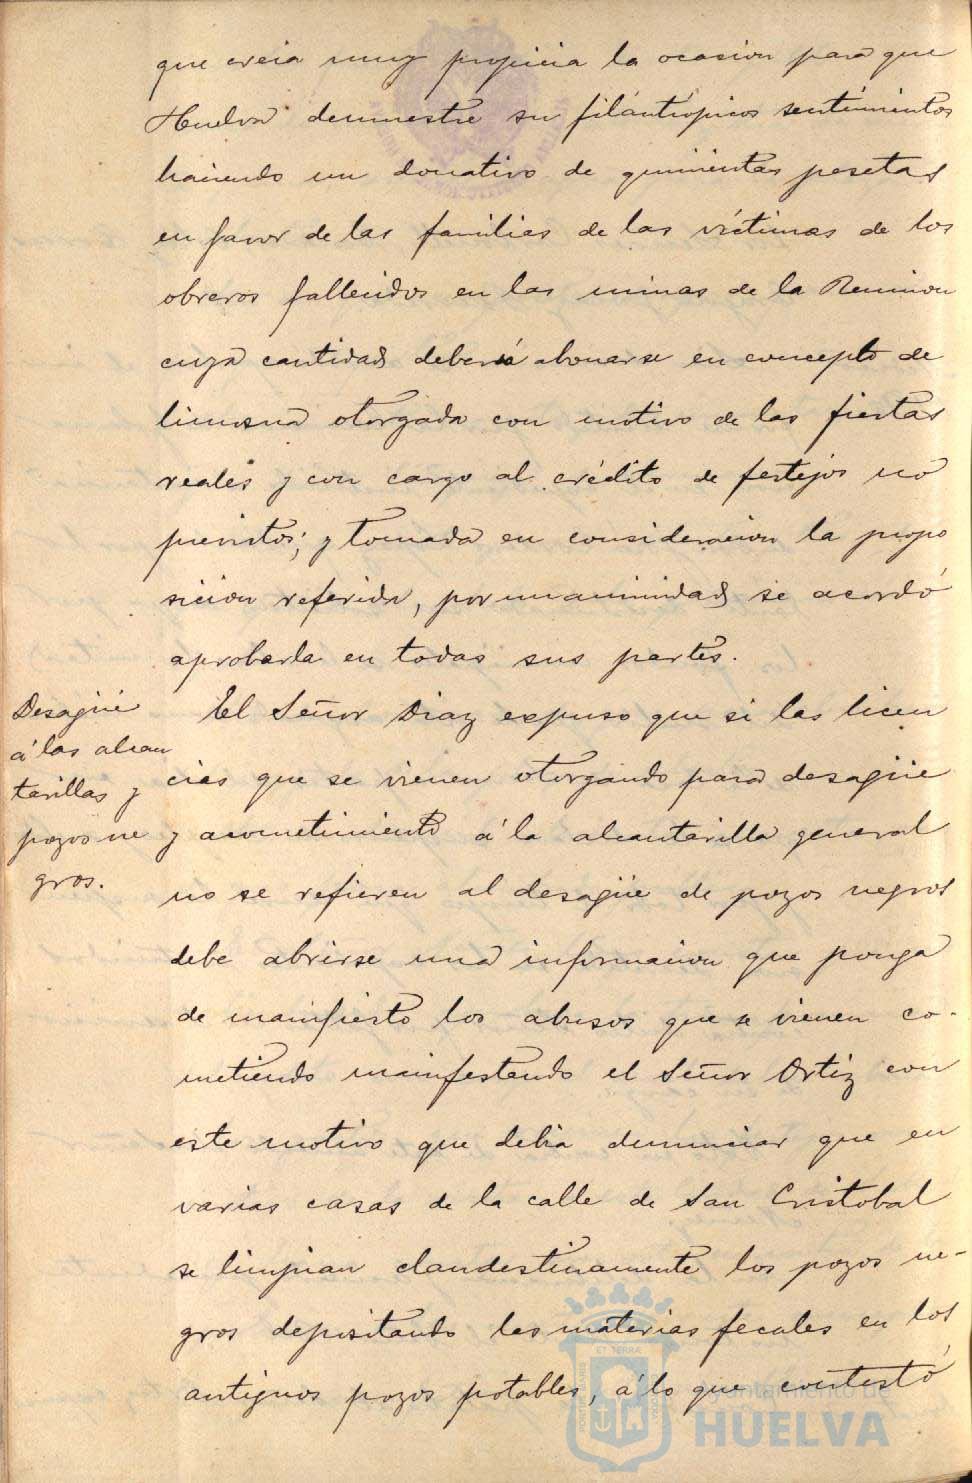 que creia muy propicia la ocasion para que
Huelva demuestre su filántrópicos sentimientos
haciendo un donativo de quinientas pesetas
en favor de las familias de las víctimas de los
obreros fallecidos en las minas de la Reunion
cuya cantidad deberá abonarse en concepto de
limosna otorgada con motivo de las fiestas
reales y con cargo al crédito de festejos no
previstos; y tomada en consideracion la propo
sicion referida, por unanimidad se acordó
aprobarla en todas sus partes.
Desagüe
á las alcan
tarillas y
pozos ne
gros.
El Señor Diaz expuso que si las licen
cias que se vienen otorgando para desagüe
y acometimiento á la alcantarilla general
no se refieren al desagüe de pozos negros
debe abrirse una informacion que ponga
de manifiesto los abusos que se vienen co-
metiendo manifestando el Señor Ortiz con
este motivo que debia denunciar que en
varias casas de la calle de San Cristobal
se limpian clandestinamente los pozos ne-
gros depositando las materias fecales en los
antiguos pozos potables, á lo que contestó
Ayuntamiento de
HUELVA